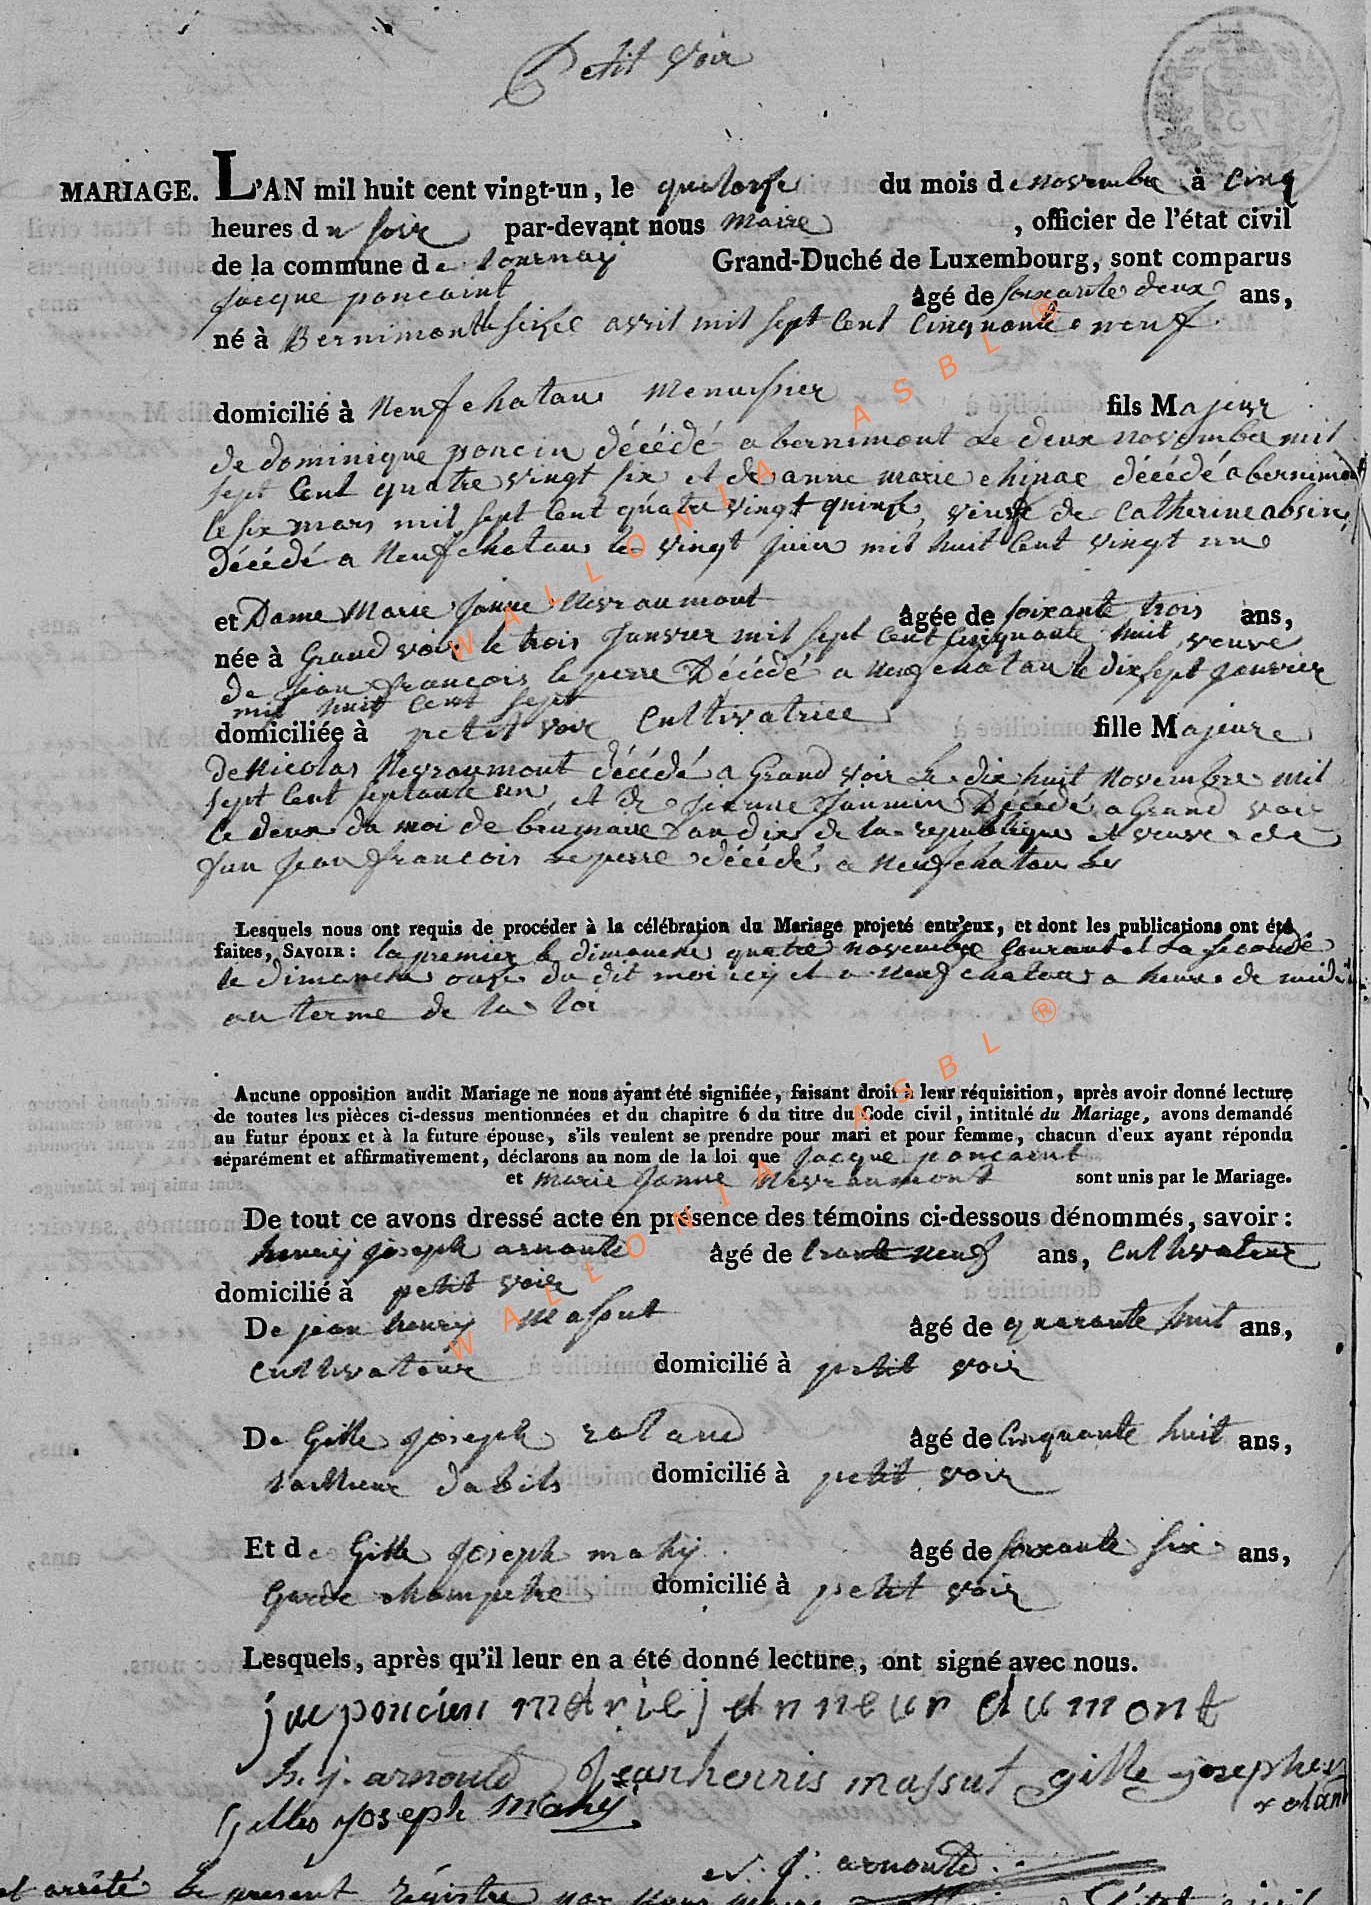 Petit Voir
MARIAGE. L'AN mil huit cent vingt-un, le quatorse du mois de novembre à cinq
heures du soir par-devant nous maire , officier de l'état civil
de la commune de tournay Grand-Duché de Luxembourg, sont comparus
Jacque poncaint âgé de soixante deux ans,
né à Bernimont le seise avril mil sept cent cinquante neuf
domicilié à Neufchatau menuisier fils Majeur
de dominique poncin décédé a bernimont le deux novembre mil
sept cent quatre vingt six et de anne marie chinae décédé a bernimont
le six mars mil sept cent quatre vingt quinse, veuf de Catherine absine
décédé a Neufchatau le vingt juin mil huit cent vingt une
et Dame Marie Janne Nevraumont âgée de soixante trois ans,
née à Grand voir le trois Janvier mil sept cent cinquante huit veuve
de jean françois lepere Décédé a neufchatau le dix sept janvier
mil huit cent sept
domiciliée à petit voir Cultivatrice fille Majeure
de Nicolas Nevraumont décédé a Grand voir le dix huit novembre mil
sept cent septante un et de jeanne Jaumin Décédé a Grand voir
le deux du moi de brumaire l'an dix de la republique et veuve de
fan jean françois Lepere décédé a neufchatau les
Lesquels nous ont requis de procéder à la célébration du Mariage projeté entr'eux, et dont les publications ont été
faites, SAVOIR : la premier le dimanche quatre novembre courant et la seconde
le dimanche onse du dit moi icy et a neufchatau a heure de midi
au terme de la loi
Aucune opposition audit Mariage ne nous ayant été signifiée, faisant droit à leur réquisition, après avoir donné lecture
de toutes les pièces ci-dessus mentionnées et du chapitre 6 du titre du Code civil, intitulé du Mariage, avons demandé
au futur époux et à la future épouse, s'ils veulent se prendre pour mari et pour femme, chacun d'eux ayant répondu
séparément et affirmativement, déclarons au nom de la loi que Jacque poncaint
et marie Janne Nevraumont sont unis par le Mariage.
De tout ce avons dressé acte en présence des témoins ci-dessous dénommés, savoir :
henry joseph arnould âgé de trante neuf ans, cultivateur
domicilié à petit voir
De jean henry massut âgé de quarante huit ans,
cultivateur domicilié à petit voir
De Gille joseph roland âgé de Cinquante huit ans,
tailleur dabils domicilié à petit voir
Et de Gille joseph mahy âgé de soixante six ans,
Garde champetre domicilié à petit voir
Lesquels, après qu'il leur en a été donné lecture, ont signé avec nous.
jac poncien marie janneur aumont
h. j. arnould Jean henris massut gille josephe
rolant
Gilles joseph Mahy
arnould
et arrêté le present régistre par nous maire
WALLONIA ASBL ®
WALLONIA ASBL ®